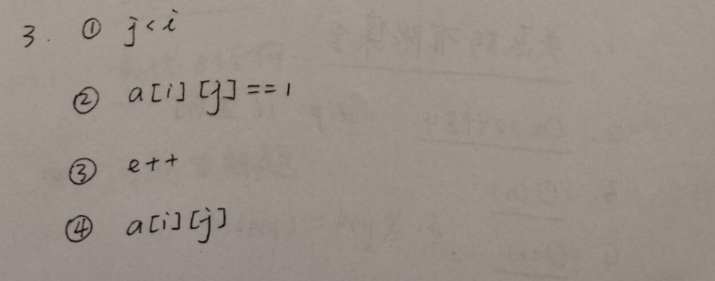 3. ① j<i
② a[i][j]==1
③ e++
④ a[i][j]